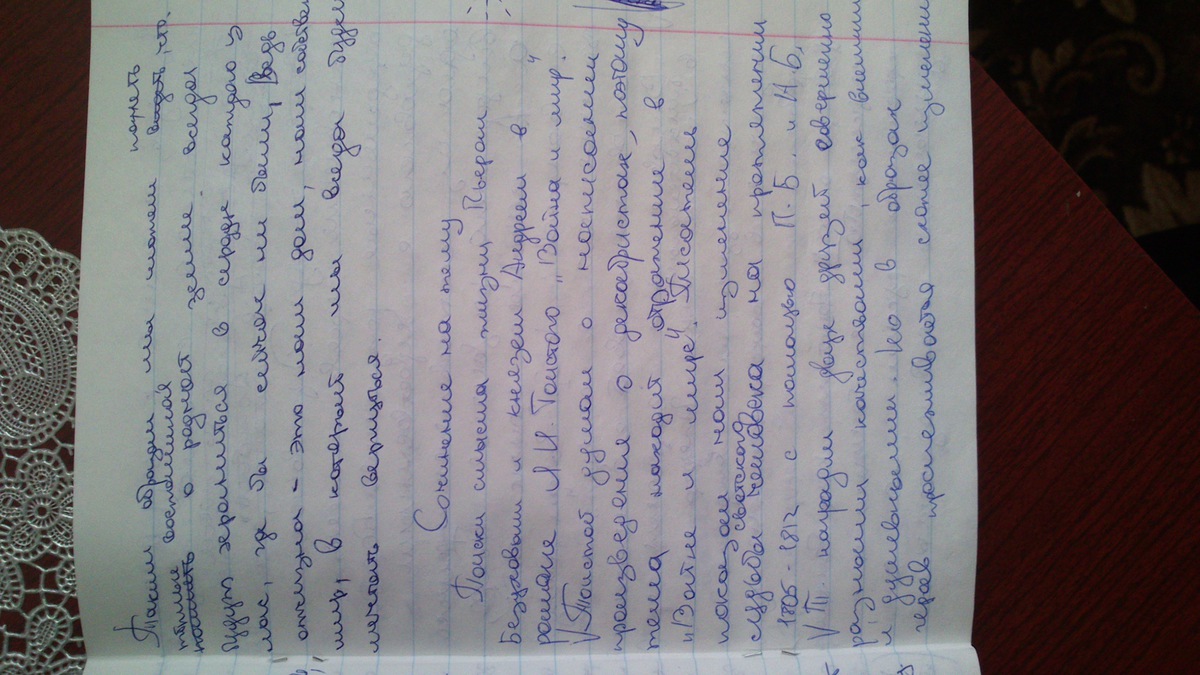 Таким образом мы можем понять
, что
тёплые воспоминания
о родной земле всегда
будут храниться в сердце каждого у
нас, где бы сейчас ни были, ведь
отчизна - это наш дом, наш собствен
мир, в который мы всегда будем
мечтать вернуться.
Сочинение на тему
Поиски смысла жизни Пьером
Безуховым и князем Андреем в
романе Л.Н. Толстого „Война и мир".
Толстой думал о написании
произведения о декабристах, поэтому
тема находит отражение в
„Войне и мире". Писатель
показал нам изменение
светского
судьбы человека на протяжении
1805-1812 с помощью П.Б. и А.Б,
Т. наградил двух друзей совершенно
разными качествами, как внешними
и душевными. Но в образах
героев прослеживается изменени